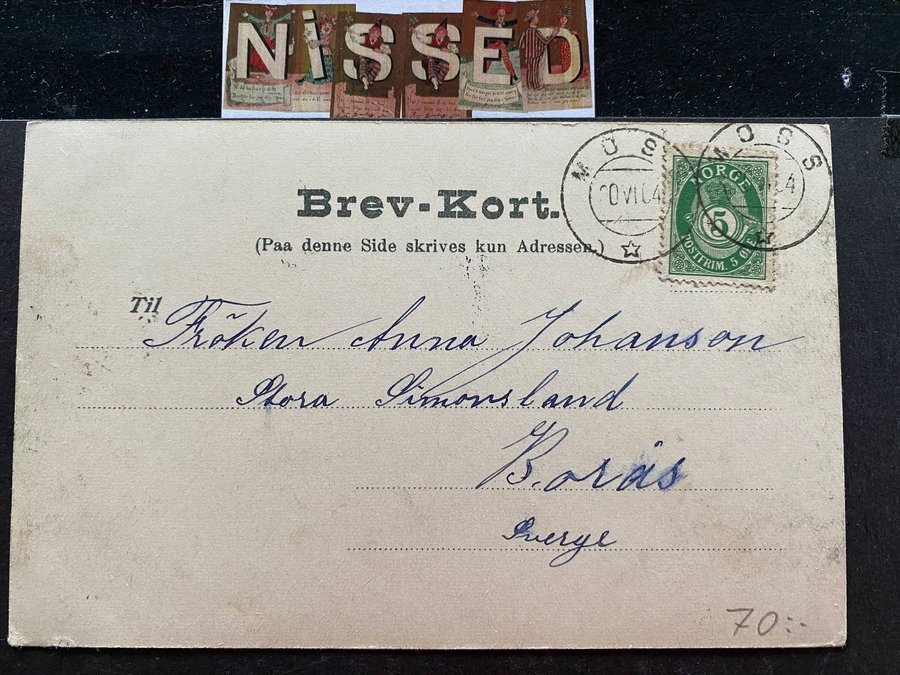 NiSSED
Brev-Kort.
(Paa denne Side skrives kun Adressen.)
MOSS
20 VI 04
MOSS
NORGE
5
POSTFRIM. 5 ØRE
Til Fröken Anna Johanson
Stora Simonsland
Borås
Sverge
70:-